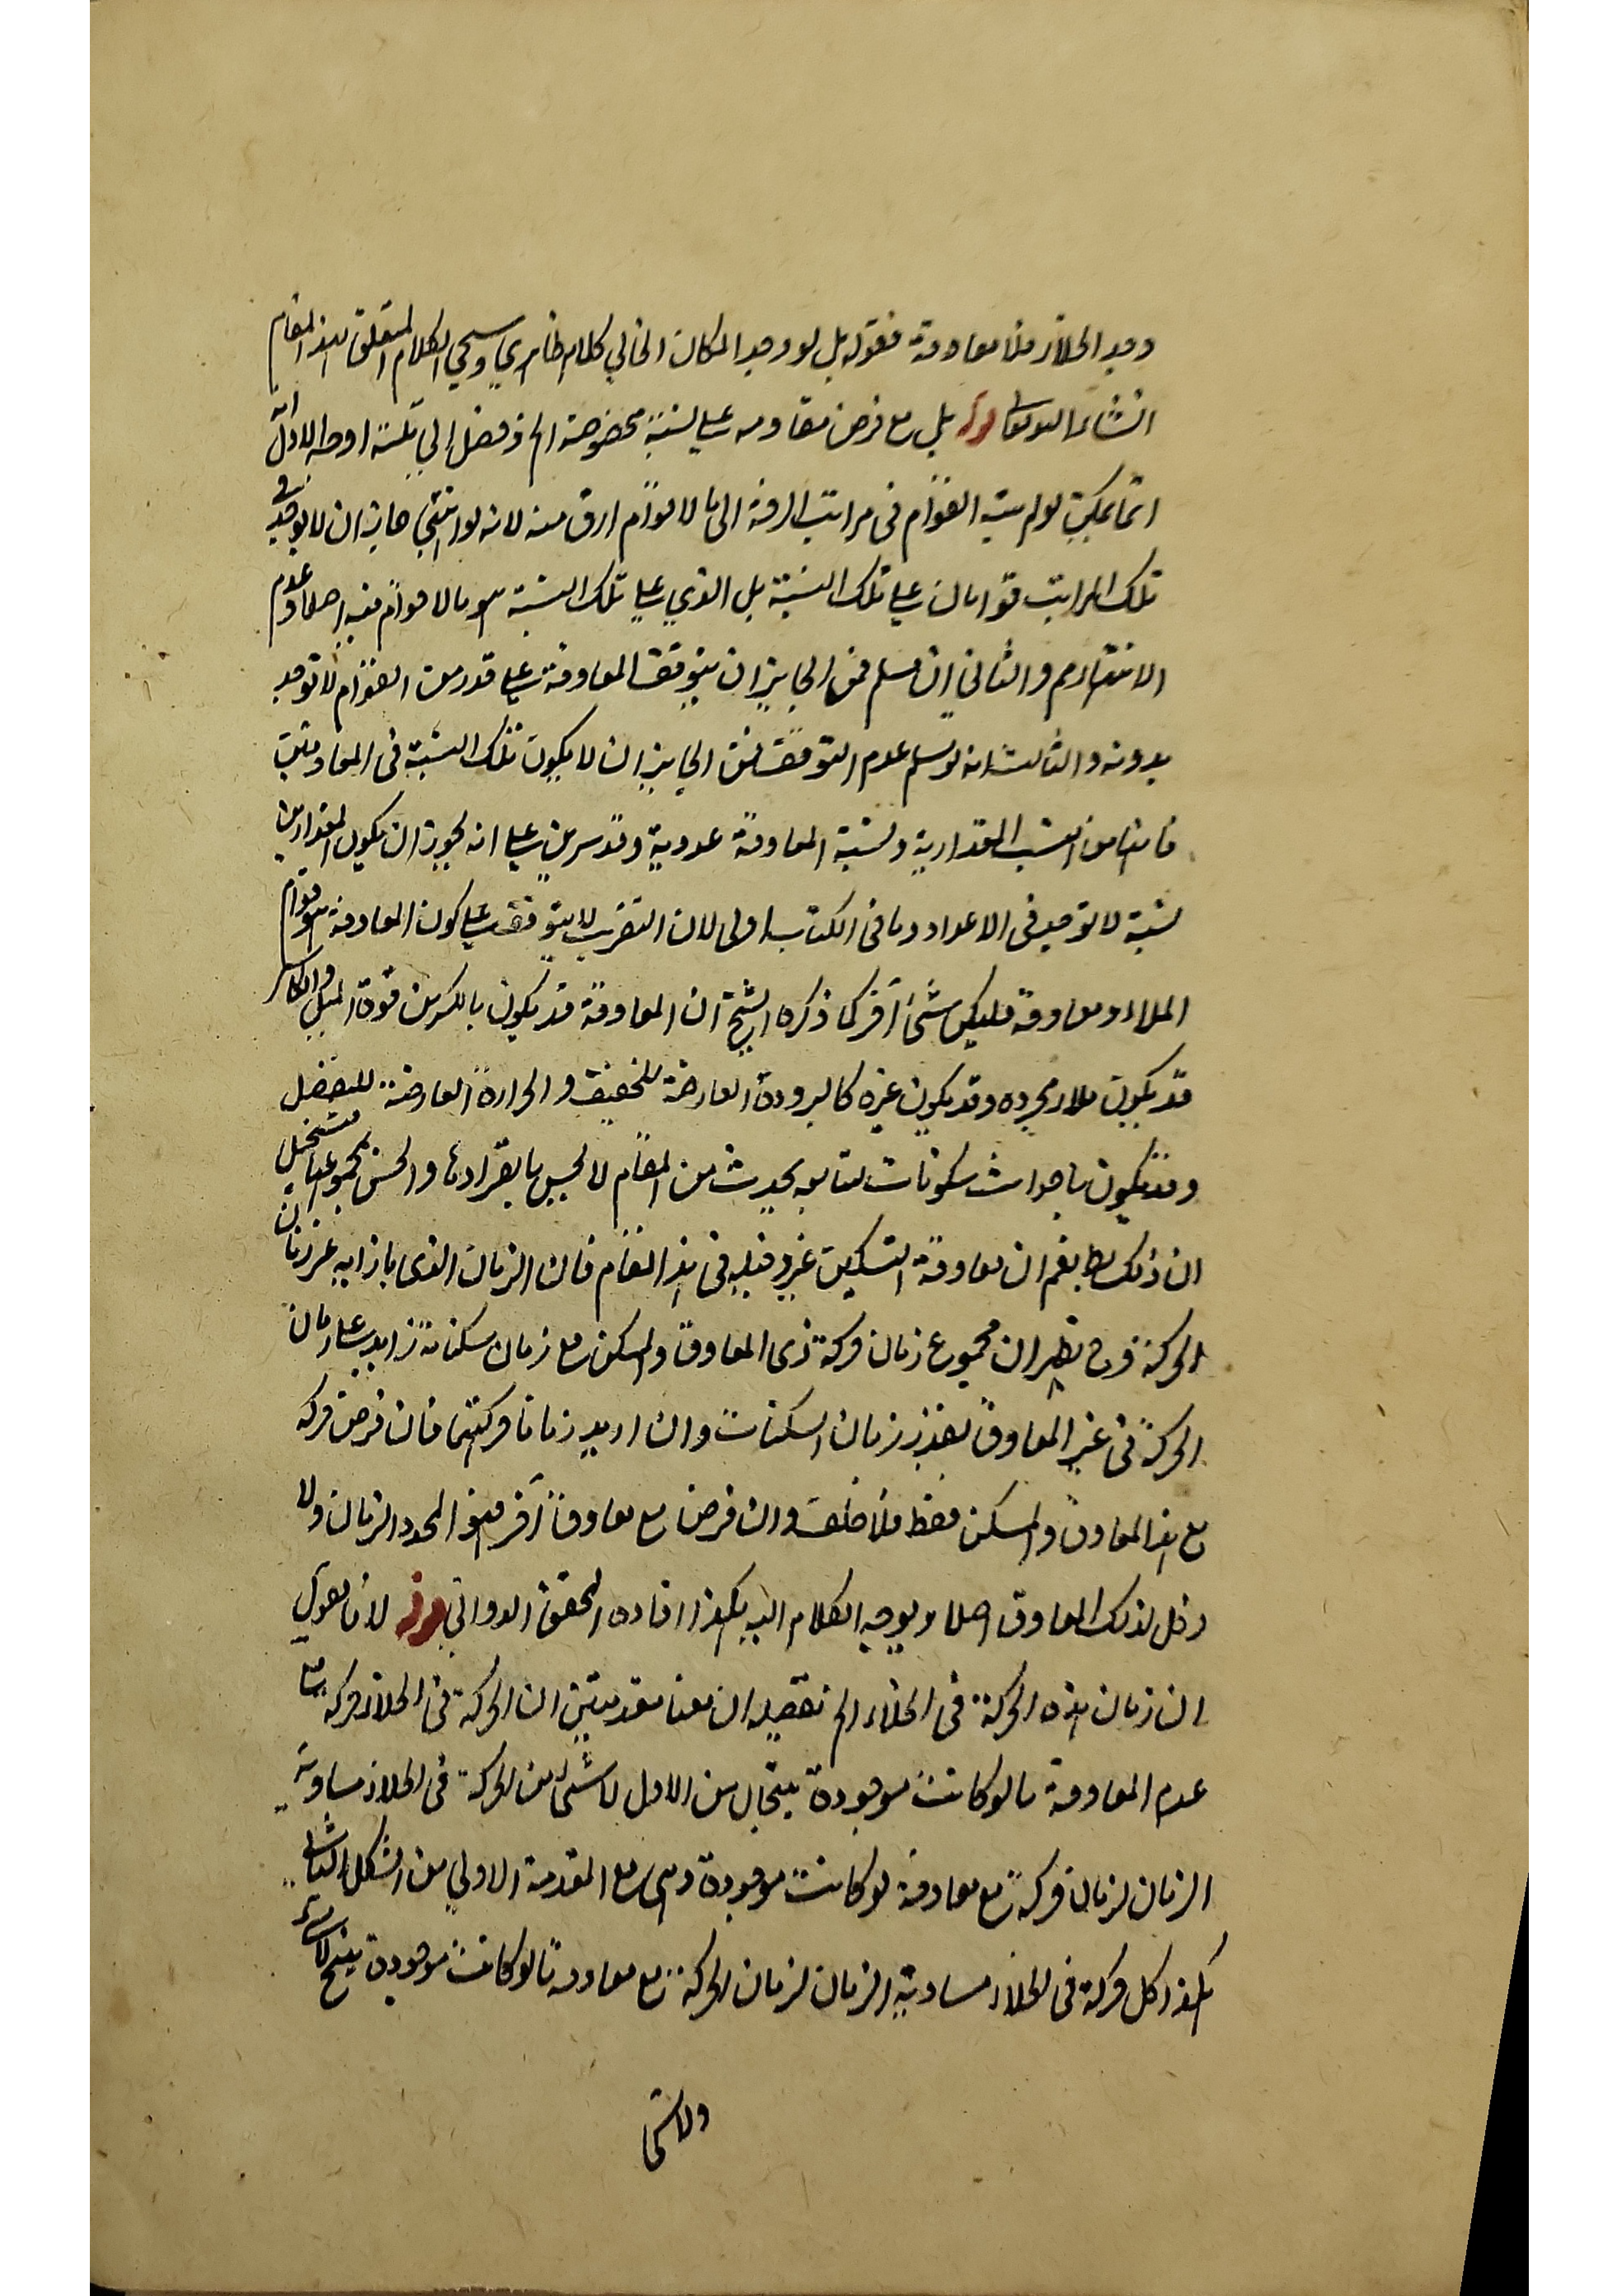 وجد الخلاء فلا معاوقة فقوله بل لو وجد المكان الخالي كلام ظاهري وسيجي الكلام المتعلق بهذا المقام
انشاء الله تعالى قوله بلى مع فرض مقاومه على نسبة مخصوصة الخ فضل الى ثلثة اوجه الاول انه
انما يمكن لو لم ينته القوام في مراتب الرقة الى ما لا قوام ارق منه لانه لو انتهى جاز ان لا يوجد في
تلك المراتب قوامان على تلك النسبة بل الذي على تلك النسبة هو ما لا قوام فيه اصلا وعدم
الانتهاء مم والثاني ان سلم فمن الجايز ان يتوقف المعاوقة على قدر من القوام لا توجد
بدونه والثالث انه لو سلم عدم التوقف فمن الجايز ان لا يكون تلك النسبة في المعاوقتين
فانها من النسب المقدارية ونسبة المعاوقة عددية وقد برهن على انه يجوز ان يكون المقدارين
نسبة لا توجد في الاعداد وما في الكتاب اولى لان التقريب لا يتوقف على كون المعاوقة هو قوام
الملاء ومعاوقة فليكن شئ آخر كما ذكره الشيخ ان المعاوقة قد يكون بالكسر من قوة الميل والكاسر
قد يكون ملاء مجرده وقد يكون غيره كالبرودة العارضة للخفيف والحرارة العارضة للثقيل
وقد يكون باحداث سكونات متتابعه يحدث من المقام لا يحس بافرادها والحس بمجموعها يتخيل
ان ذلك بطؤ نعم ان معاوقة التسكين غير دخيله في هذا المقام فان الزمان الذي بازائه غير زمان
الحركة وح نظير ان مجموع زمان حركة ذى المعاوق والمسكن مع زمان سكناته زايد على زمان
الحركة في غير المعاوق بقدر زمان السكنات وان اريد زمانا حركتهما فان فرض حركه
مع هذا المعاوق والمسكن فقط فلا خلف وان فرض مع معاوق آخر فهو المحدد الزمان ولا
دخل لذلك المعاوق اصلا ويوجه الكلام اليه هكذا افاده المحقق الدواني قوله لانا نقول
ان زمان هذه الحركة في الخلاء الخ تفصيله ان هنا مقدمتين ان الحركة في الخلاء حركة مع
عدم المعاوقة ما لو كانت موجودة ينتج ان من الاول لا شئ من الحركة في الخلاء مساوية
الزمان لزمان حركة مع معاوقة لو كانت موجودة وهى مع المقدمة الاولي من الشكل الثالث
هكذا كل حركة في الخلاء مساوية الزمان لزمان الحركة مع معاوقة ما لو كانت موجودة ينتج لا شئ
ولا شئ